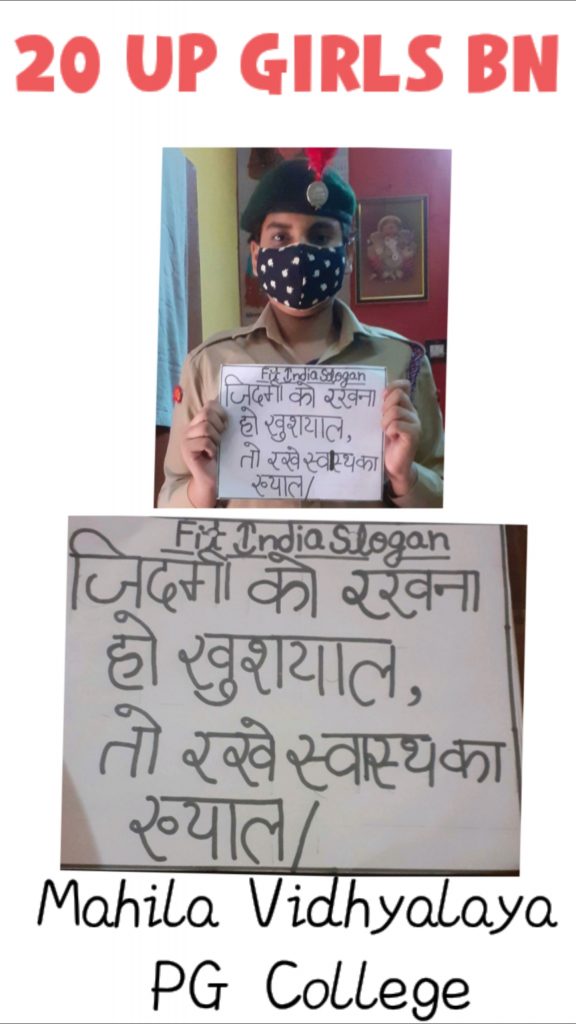 20 UP GIRLS BN
Fit India Slogan
जिदगी को रखना
हो खुशयाल,
तो रखे स्वास्थ का
ख्याल/
Fit India Slogan
जिदगी को रखना
हो खुशयाल,
तो रखे स्वास्थ का
ख्याल/
Mahila Vidhyalaya
PG College